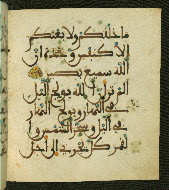 ما خلقكم ولا بعثكم
إلا كنفس وحدة إن
الله سميع بصير
ألم تر أن الله يولج اليل
في النهار ويولج النهار
في اليل وسخر الشمس وا
لقمر كل يجري إلى أجل